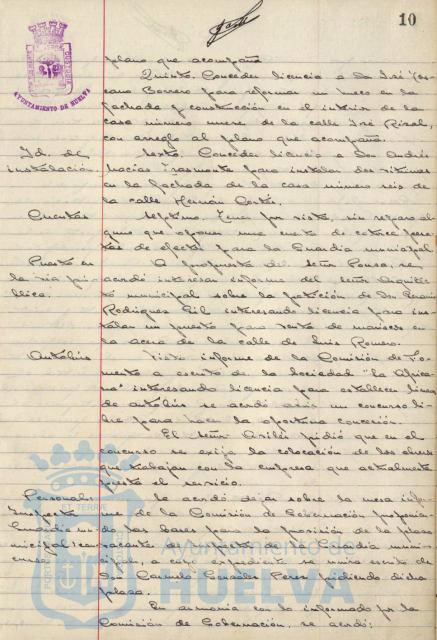 10
AYUNTAMIENTO DE HUELVA
plano que acompaña
Quinto. Conceder licencia a Dn José
cano Borrero para reformar un hueco en la
fachada y construcción en el interior de la
casa número nueve de la calle José Rizal,
con arreglo al plano que acompaña.
Id. de Sexto. Conceder licencia a Don Andrés
instalación. Macías para instalar dos vitrinas
en la fachada de la casa número seis de
la calle Hernán Cortés.
Cuentas Séptimo. Tener por vista, sin reparo al-
guno que oponer una cuenta de catorce
de efectos para la Guardia municipal
Puesto en A propuesta del señor Ponsa, se
la vía pú- acordó interesar informe del señor Arquitec-
blica. to municipal sobre la petición de Don
Rodríguez Gil interesando licencia para ins-
talar un puesto para venta de mariscos en
la acera de la calle de Luis Romero.
Autobús Visto informe de la Comisión de Fo-
mento a escrito de la Sociedad "La
interesando licencia para establecer línea
de autobús se acordó abrir un concurso li-
bre para hacer la oportuna concesión.
El señor pidió que en el
concurso se exija la colocación de los obreros
que trabajan con la empresa que actualmente
presta el servicio.
Personal. Se acordó dejar sobre la mesa infor-
Inspector me de la Comisión de Gobernación proponien-
Guardia mu- do las bases para la provisión de la plaza
nicipal: con- vacante de Inspector de la Guardia muni-
curso. cipal, a cuyo expediente se una escrito de
Don Carmelo González Pérez pidiendo dicha
plaza.
En armonía con lo informado por la
Comisión de Gobernación, se acordó:
Ayuntamiento de
HUELVA